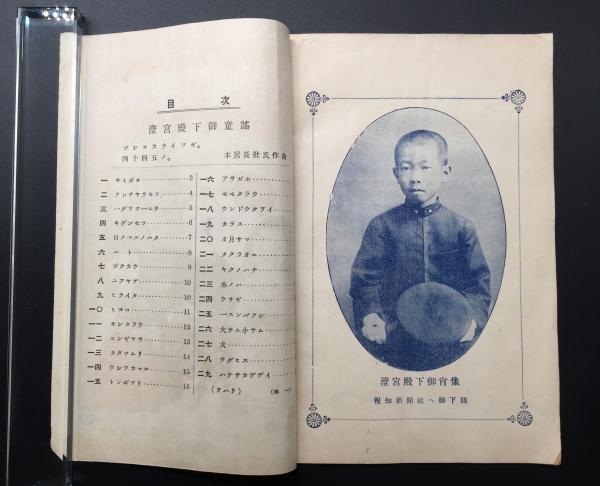 目次
澄宮殿下御童謠
ブシヨカライフギ。
四十四五ノ。
本居長世氏作曲
一 キミガヨ 3
二 テンチヤウセツ 4
三 一グワツ一ニチ 5
四 キゲンセツ 6
五 日ノマルノハタ 7
六 ハト 8
七 ガクカウ 9
八 ニフヤゲ 10
九 ヒライタ 10
一〇 ヒヨコ 11
一一 キンタラウ 12
一二 ニンギヤウ 13
一三 カタツムリ 14
一四 ウシワカマル 15
一五 トンボツリ 16
一六 アサガホ
一七 モモタラウ
一八 ウンドウクワイ
一九 カラス
二〇 オ月サマ
二一 タクラオニ
二二 キクノハナ
二三 木ノハ
二四 ウサギ
二五 一スンバフシ
二六 大サム小サム
二七 犬
二八 ウグヒス
二九 ハナサカヂヂイ
(ヲハリ)
澄宮殿下御肖像
報知新聞社へ御下賜